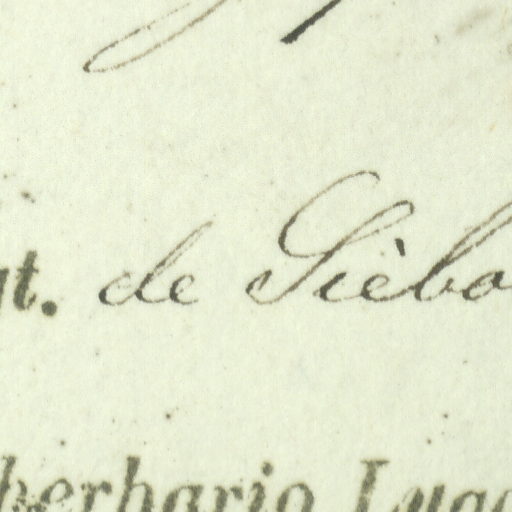 gt. de Sièbo
herbario Lugd